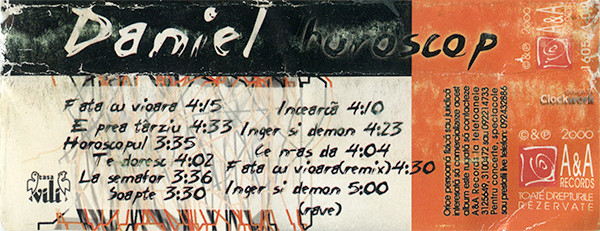 Daniel horoscop
Fata cu vioara 4:15
E prea târziu 4:33
Horoscopul 3:35
Te doresc 4:02
La semafor 3:36
Soapte 3:30
Încearcă 4:10
Inger si demon 4:23
Ce n-as da 4:04
Fata cu vioara(remix)4:30
Inger si demon 5:00
(rave)
casa
vili
Orice persoană fizică sau juridică
interesată să comercializeze acest
album este rugată să contacteze
A&A Records la telefoanele
3125649, 3100472 sau 092214733
Pentru concerte, spectacole
sau prestații live telefon: 092452886
©&℗ 2000
A&A
RECORDS
Clockwork
©&℗ 2000
A&A
RECORDS
TOATE DREPTURILE
REZERVATE